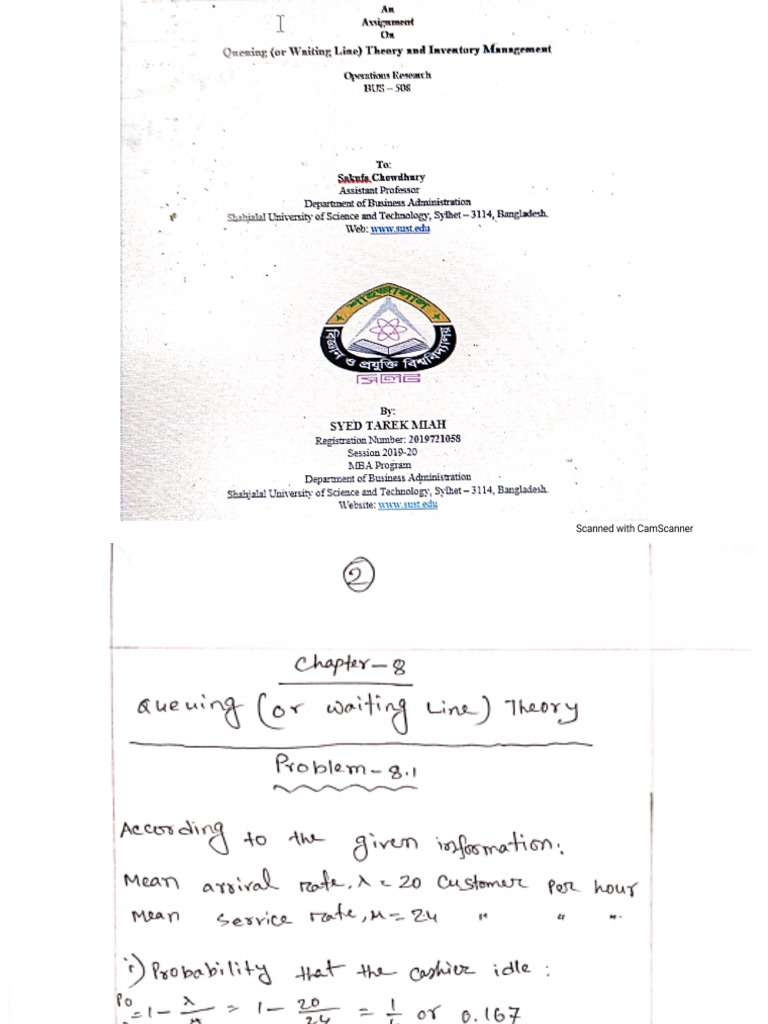 An
Assignment
On
Queuing (or Waiting Line) Theory and Inventory Management
Operations Research
BUS – 508
To:
Sakufa Chowdhury
Assistant Professor
Department of Business Administration
Shahjalal University of Science and Technology, Sylhet – 3114, Bangladesh.
Web: www.sust.edu
শাহজালাল
বিজ্ঞান ও প্রযুক্তি বিশ্ববিদ্যালয়
সিলেট
By:
SYED TAREK MIAH
Registration Number: 2019721058
Session 2019-20
MBA Program
Department of Business Administration
Shahjalal University of Science and Technology, Sylhet – 3114, Bangladesh.
Website: www.sust.edu
Scanned with CamScanner
2
Chapter-8
Queuing (or waiting Line) Theory
Problem-8.1
According to the given information:
Mean arrival rate, λ = 20 Customer Per hour
Mean Service rate, μ = 24 " " ".
i) Probability that the cashier idle :
P0 = 1 - λ/μ = 1 - 20/24 = 1/6 or 0.167